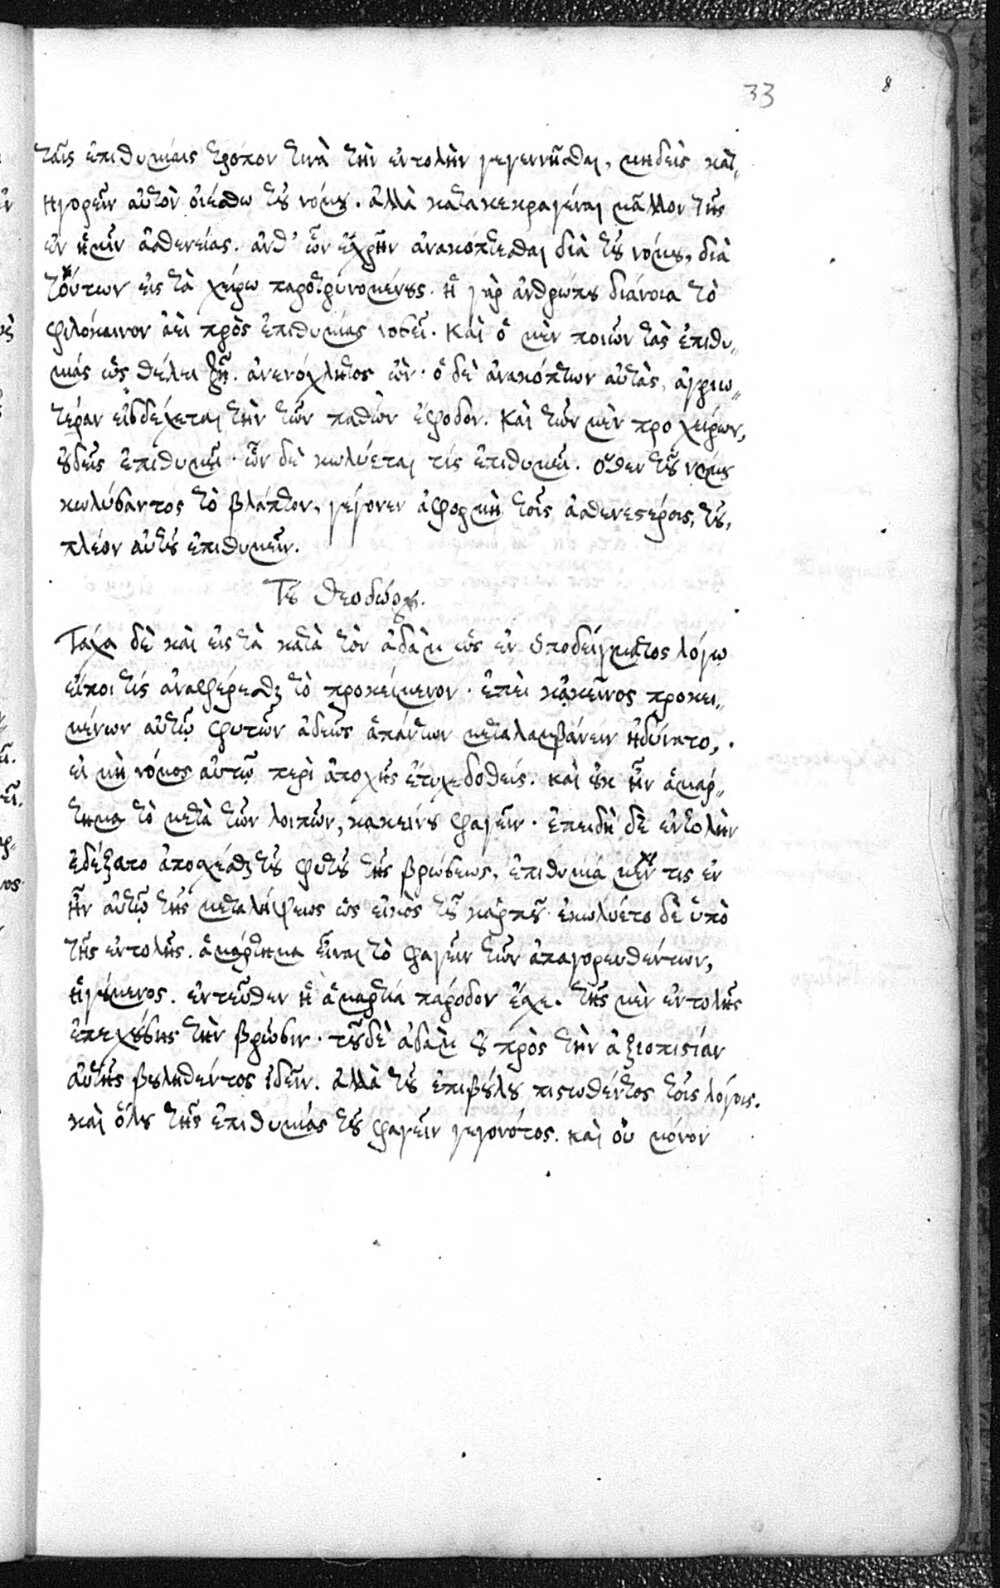 33 8
ταῖς ἐπιθυμίαις τρόπον τινὰ τὴν ἐντολὴν γεγεννῆσθαι, μηδεὶς κατ
ηγορεῖν αὐτὸν οἰέσθω τοῦ νόμου. ἀλλὰ κατακεκραγέναι μᾶλλον τῆς
ἐν ἡμῖν ἀσθενείας. ἀνθ' ὧν ἐχρῆν ἀνακόπτεσθαι διὰ τοῦ νόμου, διὰ
τούτων εἰς τὰ χείρω παροτρυνομένους. ἡ γὰρ ἀνθρώπου διάνοια τὸ
φιλόκαινον ἀεὶ πρὸς ἐπιθυμίας νοσεῖ. καὶ ὁ μὲν ποιῶν τὰς ἐπιθυ
μίας ὡς θέλει ζῇ. ἀνενόχλητος ὤν. ὁ δὲ ἀνακόπτων αὐτὰς, ἀγριω
τέραν εἰσδέχεται τὴν τῶν παθῶν ἔφοδον. καὶ τῶν μὲν προχείρων,
οὐδεὶς ἐπιθυμεῖ. ὧν δὲ κωλύεται τίς ἐπιθυμεῖ. ὅθεν τοῦ νόμου
κωλύσαντος τὸ βλάπτον, γέγονεν ἀφορμὴ τοῖς ἀσθενεστέροις, τοῦ,
πλέον αὐτοῦ ἐπιθυμεῖν.
Τοῦ Θεοδώρου.
Τάχα δὲ καὶ εἰς τὰ κατὰ τὸν ἀδὰμ ὡς ἐν ὑποδείγματος λόγῳ
εἴποι τίς ἀναφέρεσθαι τὸ προκείμενον. ἐπεὶ κἀκεῖνος προκει
μένων αὐτῷ φυτῶν ἀδεῶς ἁπάντων μεταλαμβάνειν ἠδύνατο,
εἰ μὴ νόμος αὐτῷ περὶ ἀποχῆς ἔτυχε δοθείς. καὶ οὐκ ἦν ἁμάρ
τημα τὸ μετὰ τῶν λοιπῶν, κἀκείνου φαγεῖν. ἐπειδὴ δὲ ἐντολὴν
ἐδέξατο ἀποσχέσθαι τοῦ φυτοῦ τῆς βρώσεως, ἐπιθυμία μέν τις ἐν
ἦν αὐτῷ τῆς μεταλήψεως ὡς εἰκὸς τοῦ καρποῦ ἐκωλύετο δὲ ὑπὸ
τῆς ἐντολῆς. ἁμάρτημα εἶναι τὸ φαγεῖν τῶν ἀπαγορευθέντων,
ἡγούμενος. ἐντεῦθεν ἡ ἁμαρτία πάροδον ἔσχε. τῆς μὲν ἐντολῆς
ἐπεχούσης τὴν βρῶσιν. τοῦ δὲ ἀδὰμ οὐ πρὸς τὴν ἀξιοπιστίαν
αὐτῆς βουληθέντος ἰδεῖν. ἀλλὰ τοῦ ἐπιβούλου πιστωθέντος τοῖς λόγοις.
καὶ ὅλου τῆς ἐπιθυμίας τοῦ φαγεῖν γεγονότος. καὶ οὐ μόνον